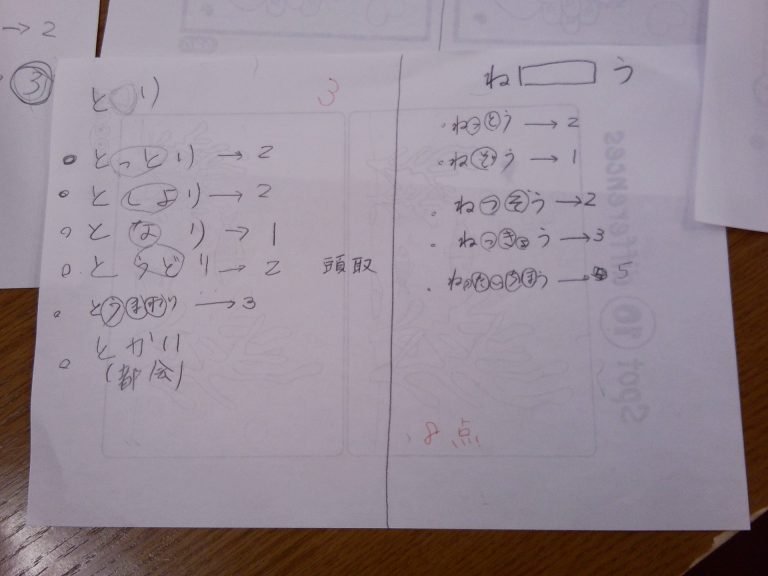 → 2
3
と○り
3
。とっとり → 2
。としより → 2
。となり → 1
。とうどり → 2 頭取
。とうまわり → 3
。とかい
(都会)
ね□う
・ねっとう → 2
・ねぞう → 1
・ねつぞう → 2
・ねっきょう → 3
8点
Spot 10 Differences